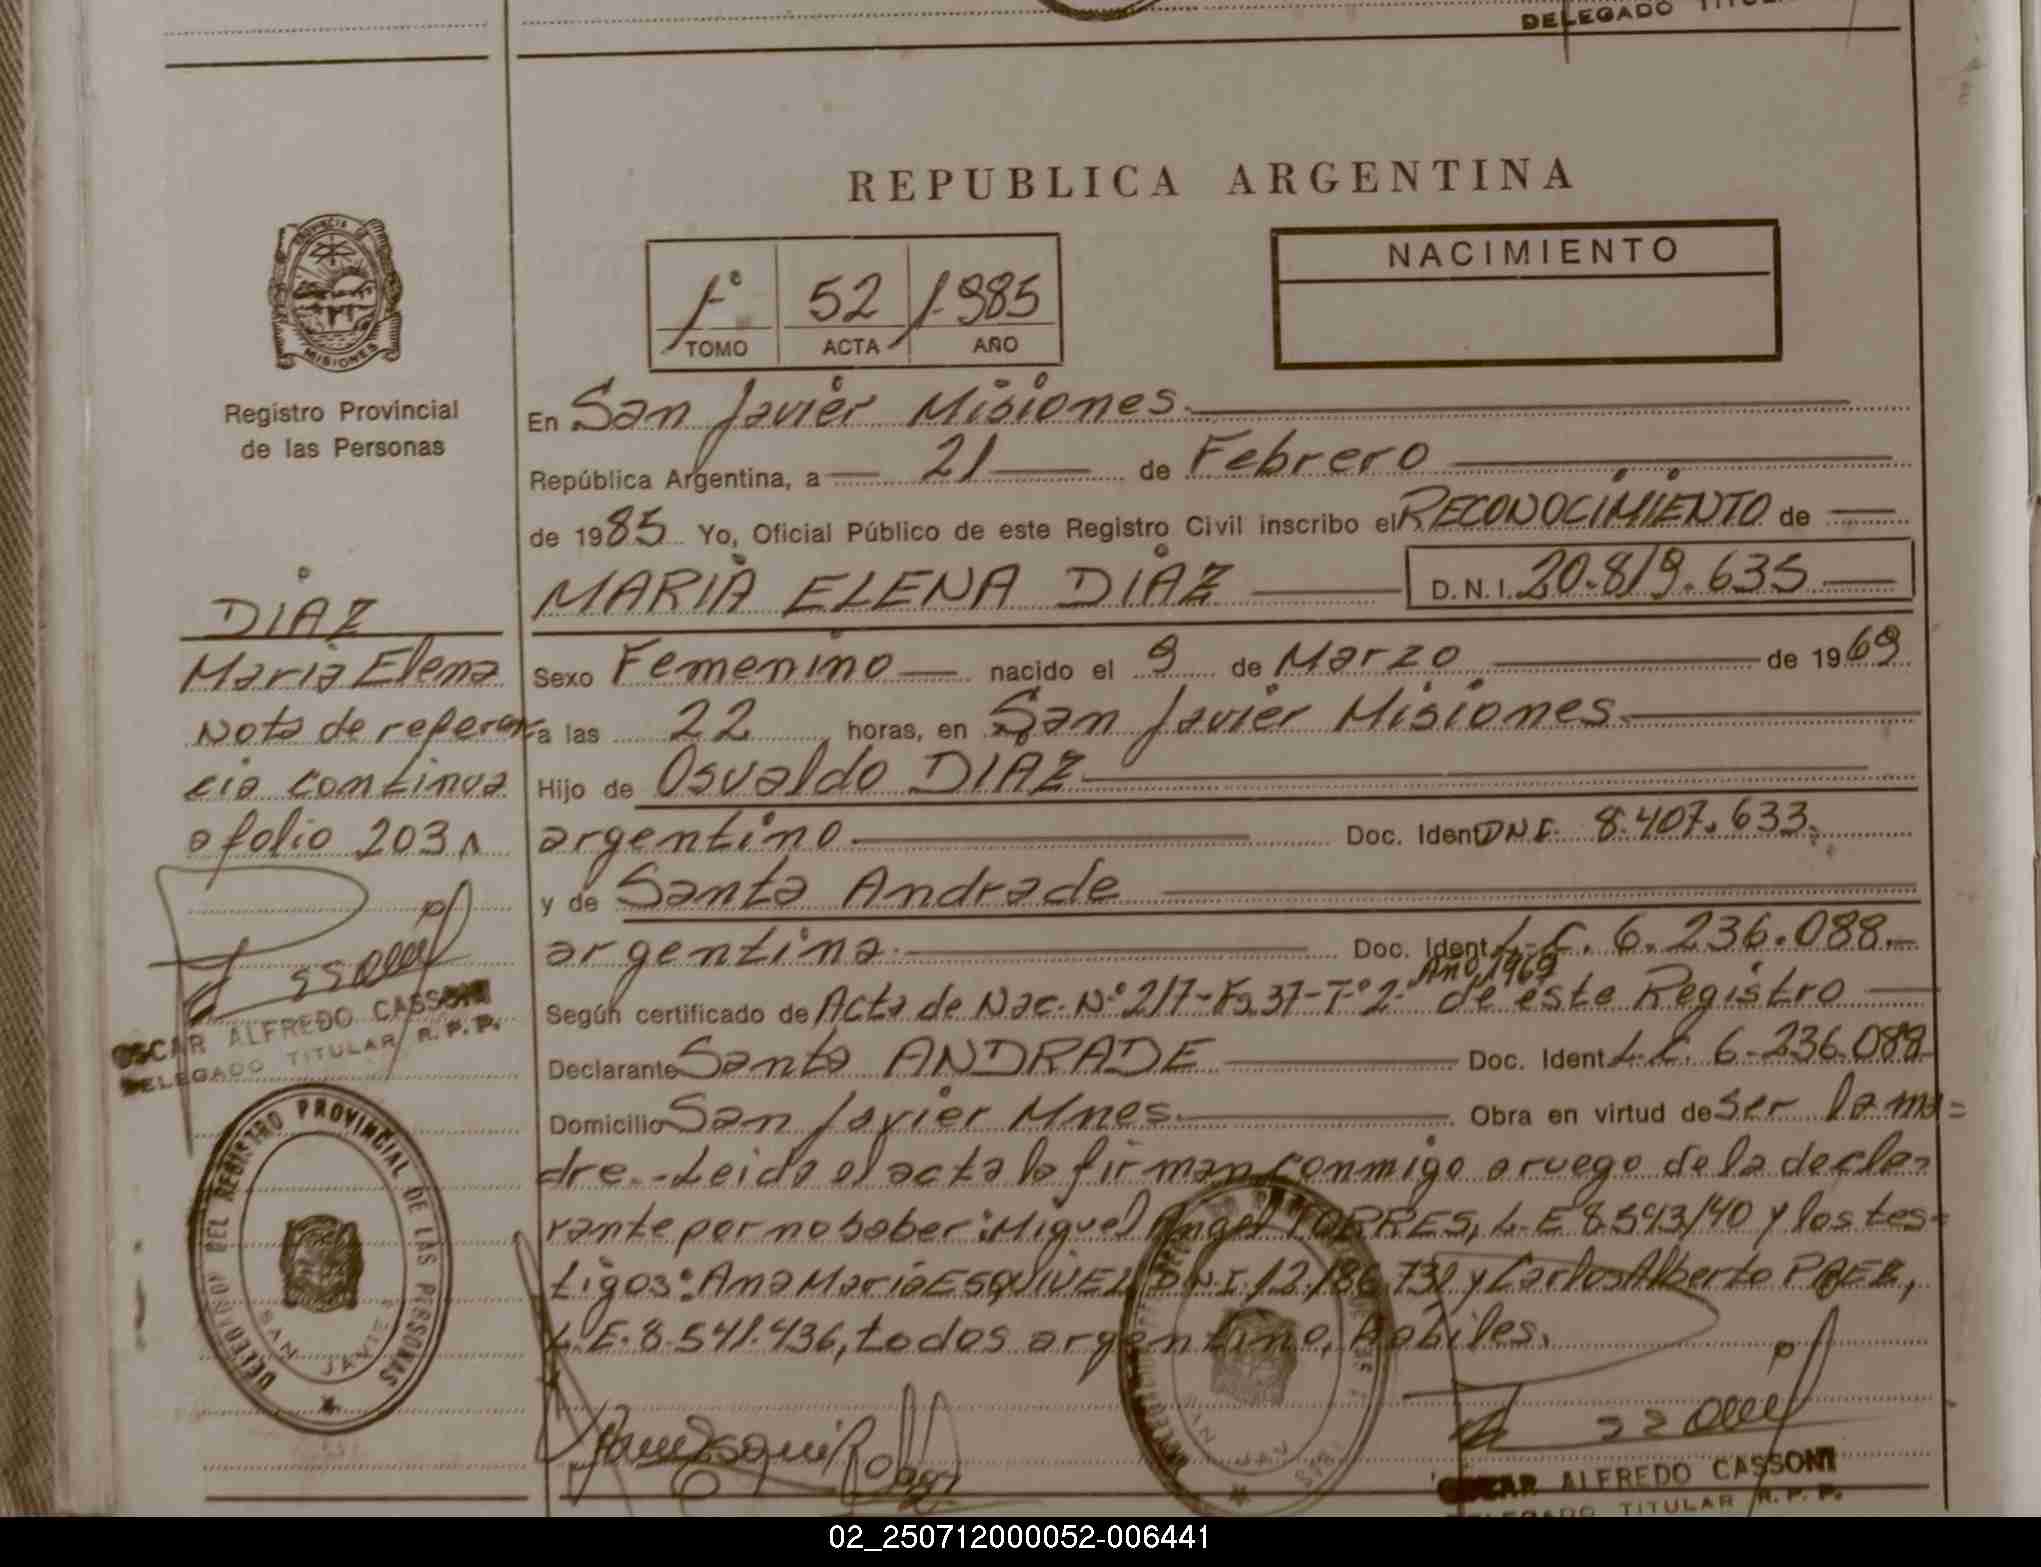 DELEGADO TITULAR
REPUBLICA ARGENTINA
PROVINCIA DE
MISIONES
Registro Provincial
de las Personas
1º 52 1.985
TOMO ACTA AÑO
NACIMIENTO
En San Javier Misiones.
República Argentina, a 21 de Febrero
de 1985 Yo, Oficial Público de este Registro Civil inscribo el RECONOCIMIENTO de
MARIA ELENA DIAZ D.N.I. 20.819.635
DIAZ
Maria Elena
Nota de referen
cia continua
a folio 203
Sexo Femenino nacido el 9 de Marzo de 1969
a las 22 horas, en San Javier Misiones.
Hijo de Osvaldo DIAZ
argentino Doc. Ident DNI. 8.407.633.
y de Santa Andrade
argentina. Doc. Ident L.C. 6.236.088.
Año 1969
Según certificado de Acta de Nac. Nº 217-Fº 37-Tº 2- de este Registro
Declarante Santa ANDRADE Doc. Ident L.C. 6.236.088
Domicilio San Javier Mnes. Obra en virtud de ser la ma=
dre.-Leida el acta la firman conmigo a ruego de la decla-
rante por no saber: Miguel Angel TORRES, L.E 8.543140 y los tes-
tigos: Ana Maria ESQUIVEL D.N.I. 12.186.731 y Carlos Alberto PAEZ,
L.E. 8.541.436, todos argentino, habiles.
OSCAR ALFREDO CASSONI
DELEGADO TITULAR R.P.P.
DELEGACION DEL REGISTRO PROVINCIAL DE LAS PERSONAS
SAN JAVIER
OSCAR ALFREDO CASSONI
DELEGADO TITULAR R.P.P.
02_250712000052-006441